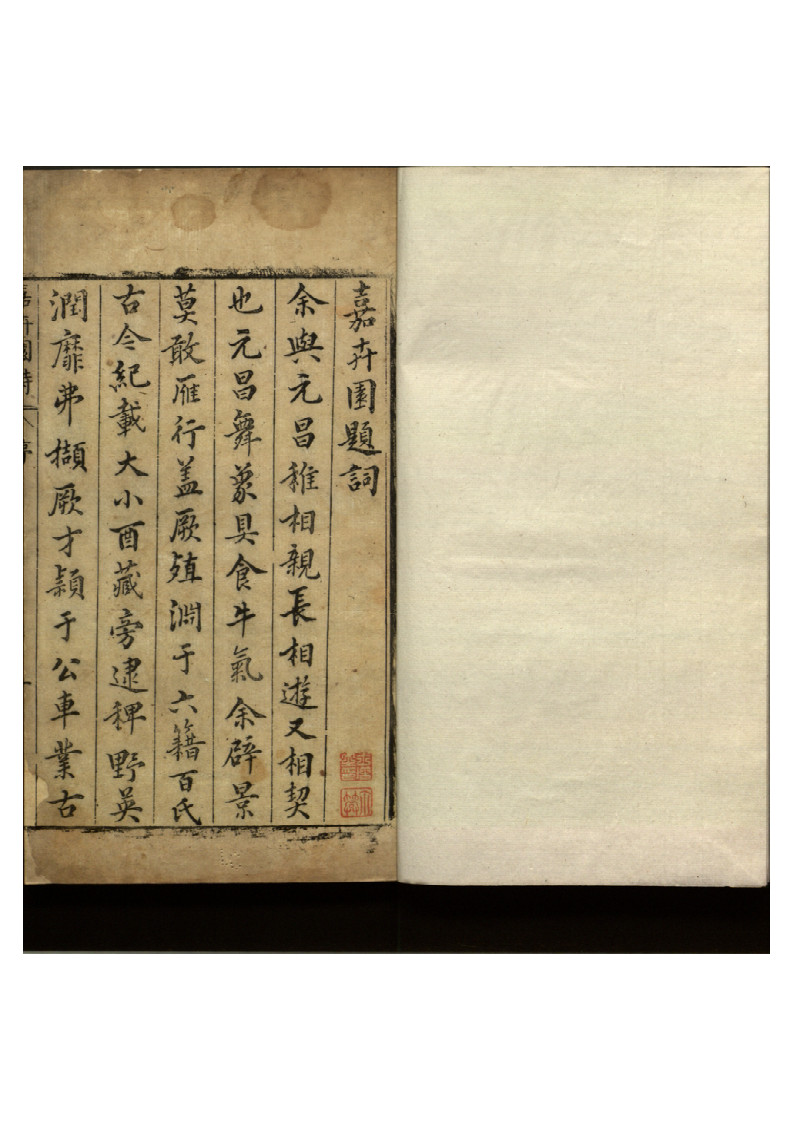 嘉卉園題詞
余與元昌稚相親長相遊又相契
也元昌舞象具食牛氣余辟景
莫敢雁行葢厥殖淵于六籍百氏
古今紀載大小酉藏旁逮稗野英
潤靡弗擷厥才頴于公車業古